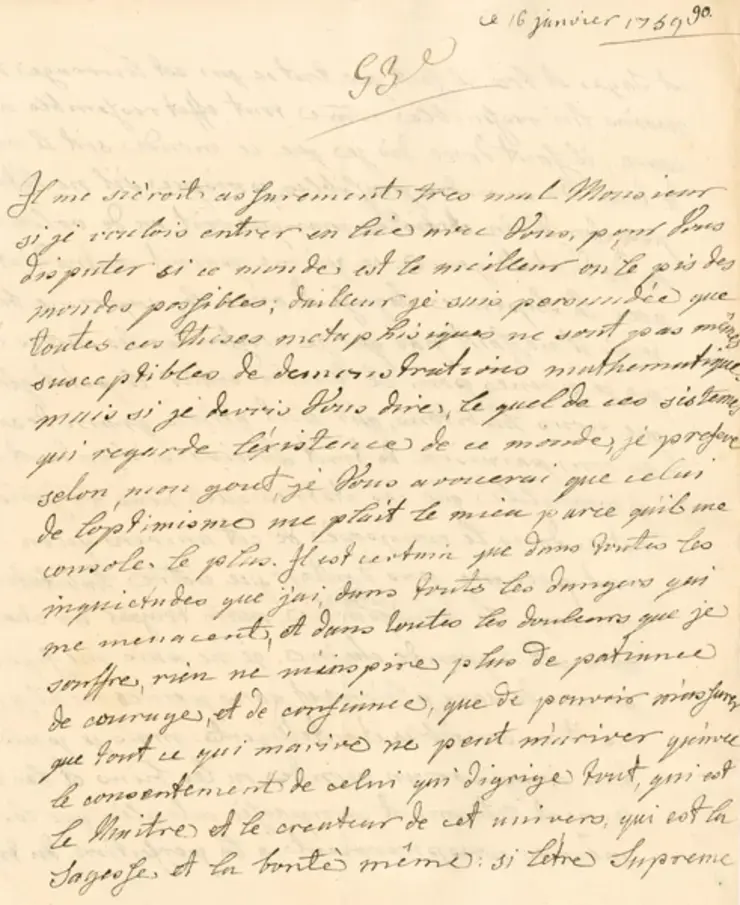 ce 16 janvier 1759
90.
93e
Il me siéroit assurement tres mal Monsieur
si je voulois entrer en lice avec Vous, pour Vous
disputer si ce monde est le meilleur ou le pis des
mondes possibles; dailleur je suis persuadée que
toutes ces theses metaphisiques ne sont pas mêmes
susceptibles de demonstrations mathematiques
mais si je devris Vous dire, le quel de ces sistemes
qui regarde l'éxistence de ce monde, je prefere
selon mon gout, je Vous avouerai que celui
de loptimisme me plait le mieu parce quil me
console le plus. Il est certain que dans toutes les
inquietudes que j'ai, dans touts les dangers qui
me menacent, et dans toutes les douleurs que je
souffre, rien ne m'inspire plus de patiance
de courage, et de confiance, que de pouvoir m'assurer
que tout ce qui m'arive ne peut m'ariver qu'avec
le consentement de celui qui digrige tout, qui est
le Maitre et le createur de cet univers, qui est la
sagesse et la bonté même: si létre Supreme